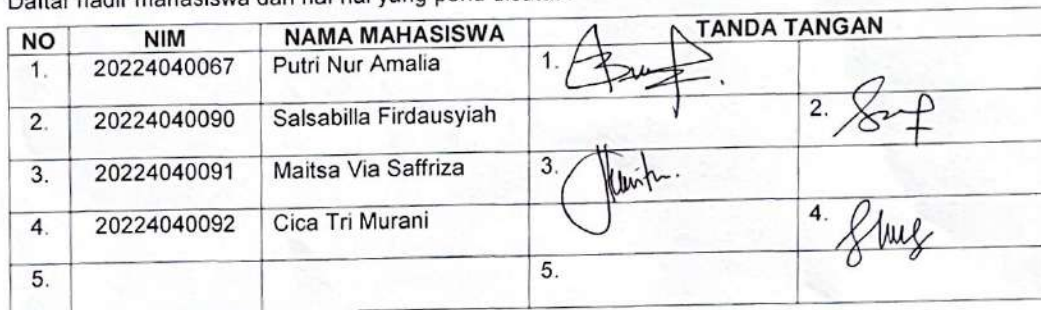 Daftar hadir mahasiswa dan hal-hal yang perlu
NO NIM NAMA MAHASISWA TANDA TANGAN
1. 20224040067 Putri Nur Amalia 1.
2. 20224040090 Salsabilla Firdausyiah 2.
3. 20224040091 Maitsa Via Saffriza 3.
4. 20224040092 Cica Tri Murani 4.
5. 5.